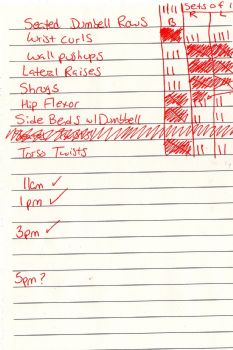 Sets of 1
Seated Dumbell Rows |||| || B R L
Wrist curls ||| |||
Wall pushups ||
Lateral Raises ||
Shrugs ||
Hip Flexor || ||
Side Bends w/ Dumbell || ||
Torso Twists || ||
11am ✓
1pm ✓
3pm ✓
5pm?